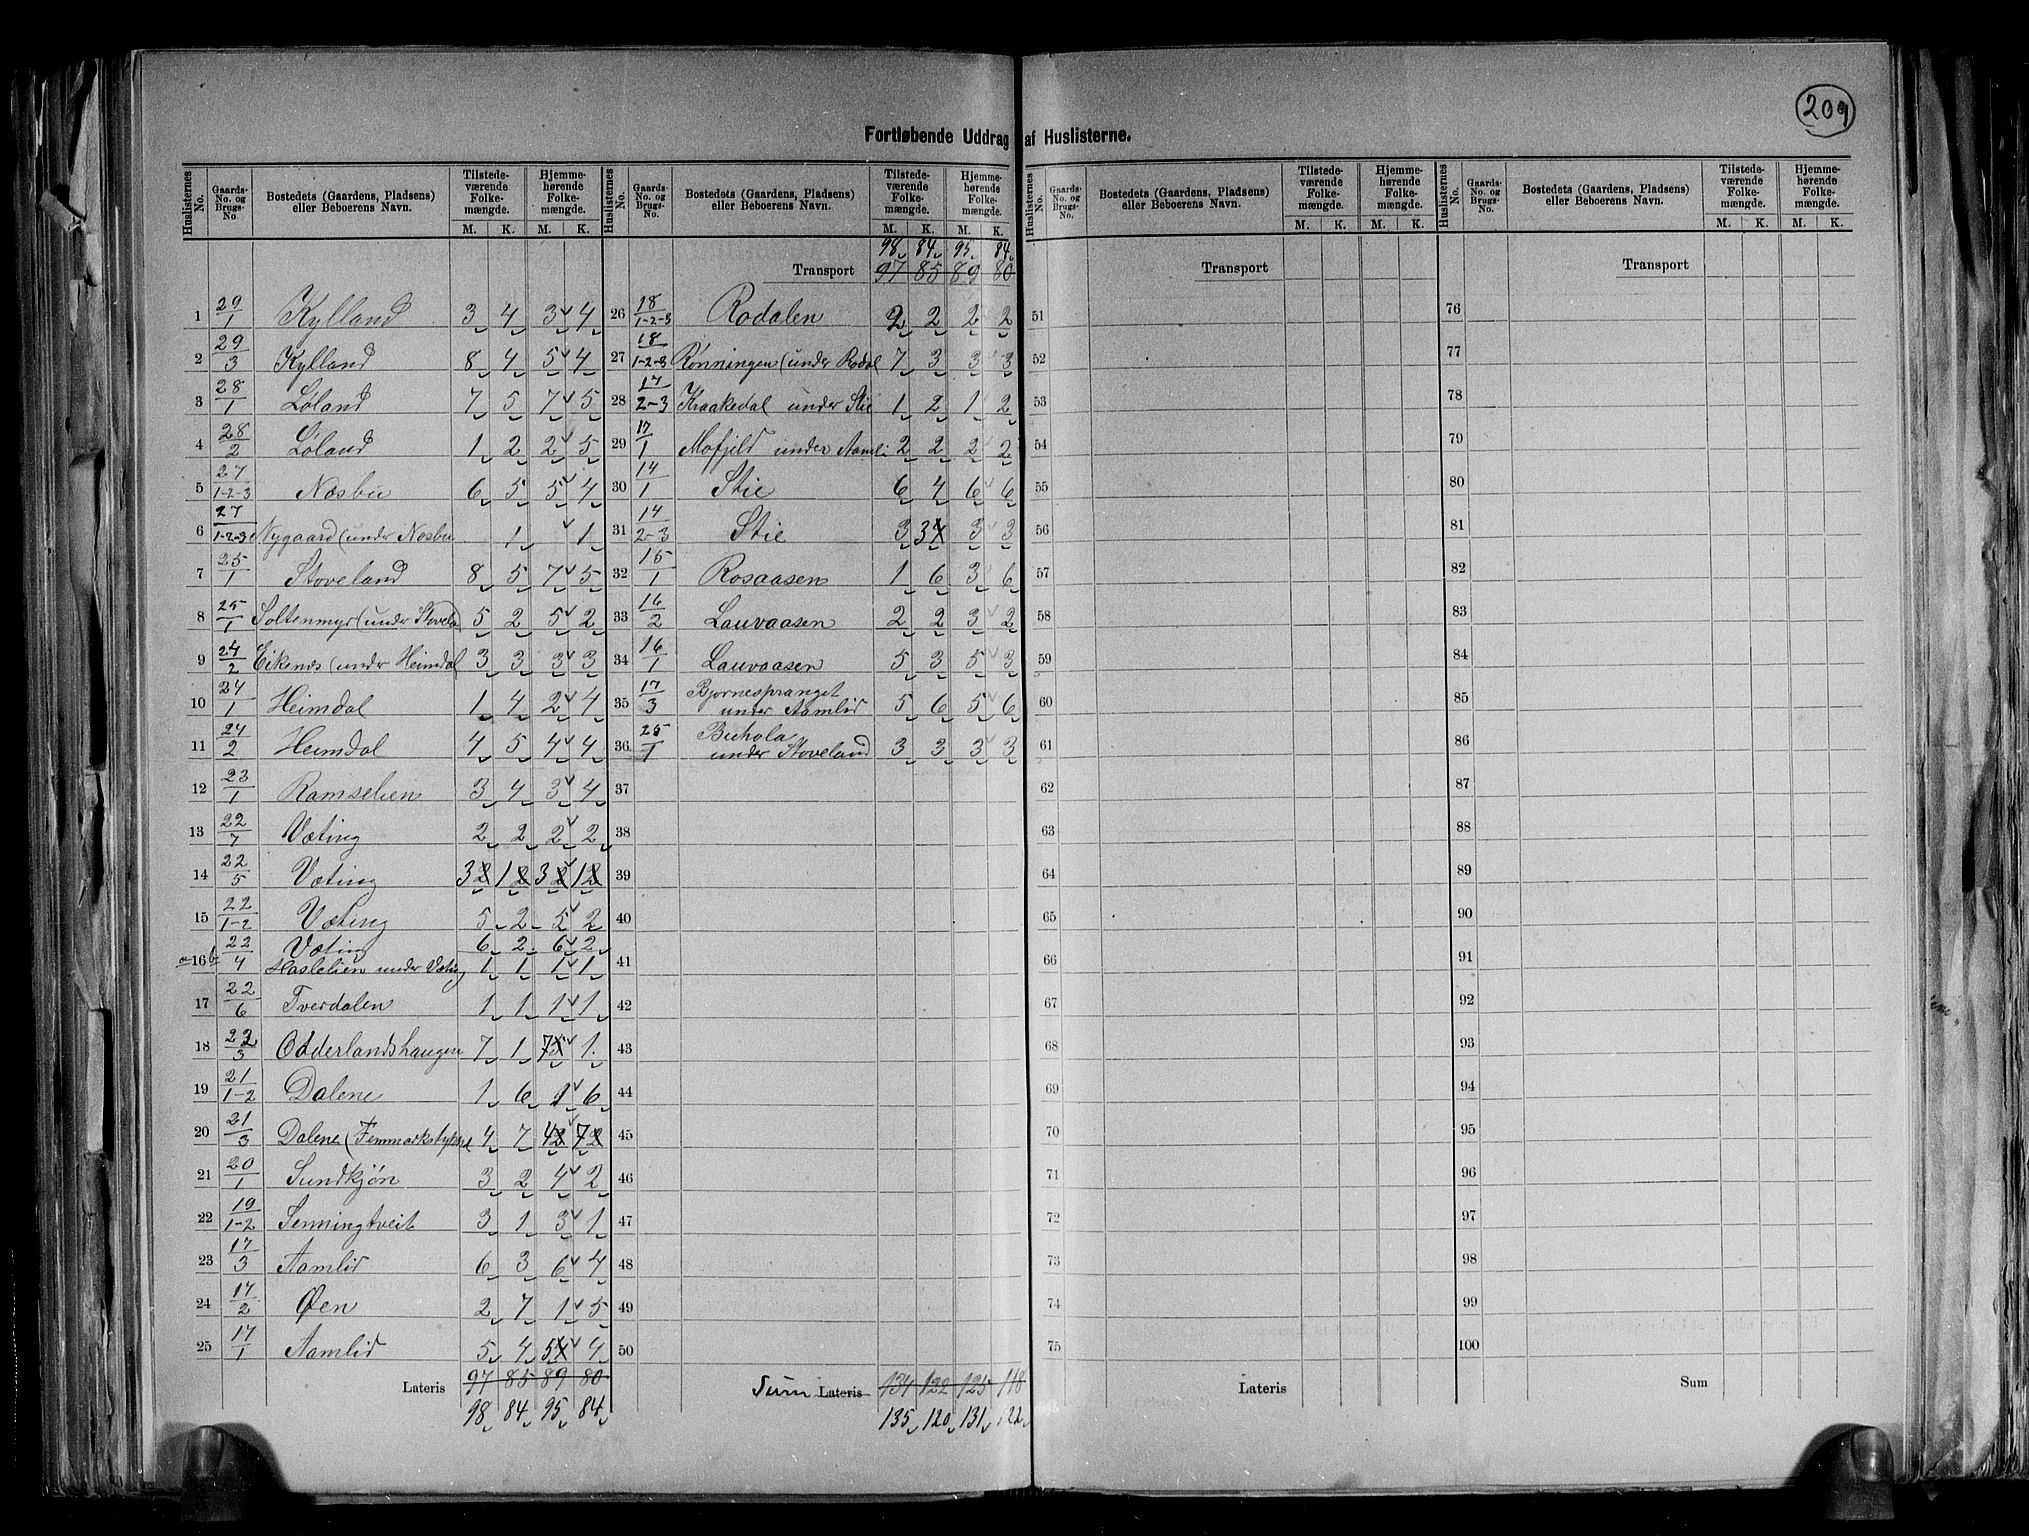 209
Fortløbende Uddrag af Huslisterne.
Huslisternes No. | Gaards-No. og Brugs-No | Bostedets (Gaardens, Pladsens) eller Beboerens Navn. | Tilstedeværende Folkemængde. M. K. | Hjemmehørende Folkemængde. M. K.
1 29/1 Kylland 3 4 3 4
2 29/3 Kylland 8 4 5 4
3 28/1 Løland 7 5 7 5
4 28/2 Løland 1 2 2 5
5 27/1-2-3 Næsbu 6 5 5 4
6 27/1-2-3 Nygaard (under Næsbu 1 1
7 25/1 Stoveland 8 5 7 5
8 25/1 Soltenmyr (under Stovela) 5 2 5 2
9 24/2 Eikenæs (under Heimdal 3 3 3 3
10 24/1 Heimdal 1 4 2 4
11 24/2 Heimdal 4 5 4 4
12 23/1 Ramselien 3 4 3 4
13 22/7 Væting 2 2 2 2
14 22/5 Væting 3 1 3 1
15 22/1-2 Væting 5 2 5 2
a 16 b 22/4 Væting 6 2 6 2
Haslelien under Væting 1 1 1 1
17 22/6 Tverdalen 1 1 1 1
18 22/3 Odderlandshaugen 7 1 7 1
19 21/1-2 Dalene 1 6 1 6
20 21/3 Dalene ( 4 7 4 7
21 20/1 Sundkjøn 3 2 4 2
22 19/1-2 Senningtveit 3 1 3 1
23 17/3 Aamlid 6 3 6 4
24 17/2 Øen 2 7 1 5
25 17/1 Aamlid 5 4 5 4
Lateris 97 85 89 80
98 84 95 84
Huslisternes No. | Gaards-No. og Brugs-No. | Bostedets (Gaardens, Pladsens) eller Beboerens Navn. | Tilstedeværende Folkemængde. M. K. | Hjemmehørende Folkemængde. M. K.
98 84 95 84
Transport 97 85 89 80
26 18/1-2-3 Rodalen 2 2 2 2
27 18/1-2-3 Rønningen (under Rodal 7 3 3 3
28 17/2-3 Kraakedal under Stie 1 2 1 2
29 17/1 Mofjeld under Aamli 2 2 2 2
30 14/1 Stie 6 4 6 6
31 14/2-3 Stie 3 3 3 3
32 15/1 Rosaasen 1 6 3 6
33 16/2 Lauvaasen 2 2 3 2
34 16/1 Lauvaasen 5 3 5 3
35 17/3 Bjørnespranget
under Aamlid 5 6 5 6
36 25/1 Buhola
under Stoveland 3 3 3 3
37
38
39
40
41
42
43
44
45
46
47
48
49
50
Sum Lateris 134 122 125 118
135 120 131 122
Huslisternes No. | Gaards-No. og Brugs-No. | Bostedets (Gaardens, Pladsens) eller Beboerens Navn. | Tilstedeværende Folkemængde. M. K. | Hjemmehørende Folkemængde. M. K.
Transport
51
52
53
54
55
56
57
58
59
60
61
62
63
64
65
66
67
68
69
70
71
72
73
74
75
Lateris
Huslisternes No. | Gaards-No. og Brugs-No. | Bostedets (Gaardens, Pladsens) eller Beboerens Navn. | Tilstedeværende Folkemængde. M. K. | Hjemmehørende Folkemængde. M. K.
Transport
76
77
78
79
80
81
82
83
84
85
86
87
88
89
90
91
92
93
94
95
96
97
98
99
100
Sum